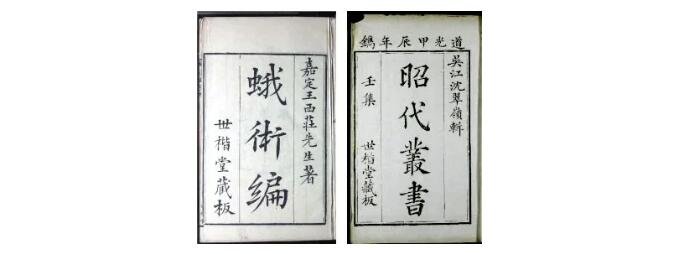 嘉定王西莊先生著
蛾術編
世楷堂藏板
道光甲辰年鐫
吳江沈翠嶺輯
昭代叢書
壬集
世楷堂藏板